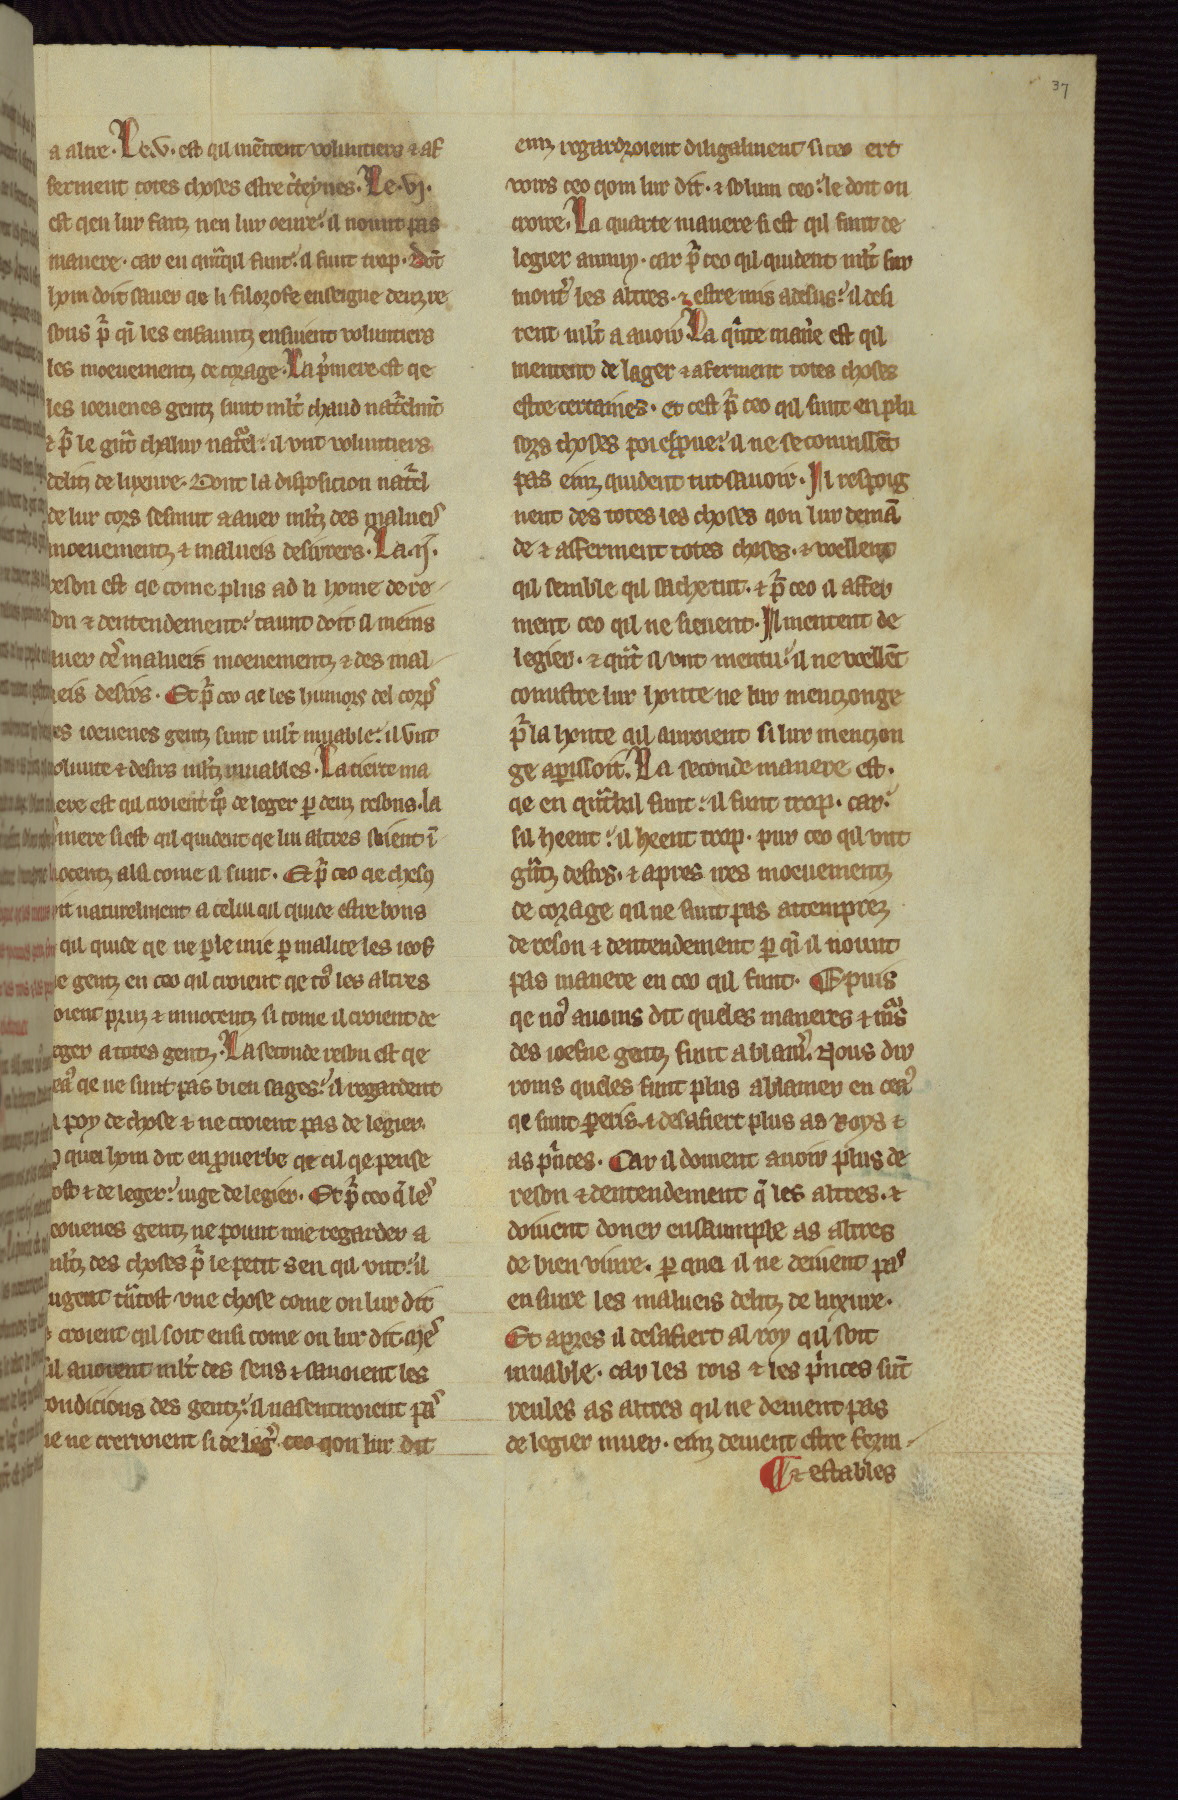 37
a altre. Le .v. est qil mētent voluntiers ⁊ af
ferment totes choses estre c̓teynes. Le .vj.
est qen lur faitz nen lur oeure: il nount pas
manere. car en qūqil funt: il funt trop. Dōt
hom doit sauer qe li filozofe enseigne deuz re
sons pͣ qi les enfauntz ensiuent voluntiers
les moeuementz de corage. La pͥmere est qe
les ioeuenes gentz sunt ml̓t chaud natͬelmēt
⁊ pͣ le gͣnt chalur natͬel: il vnt voluntiers
delitz de luxure. Dont la disposicion natͬel
de lur cors sesmut a auer ml̓tz des malueis
moeuementz ⁊ malueis desirers. La .ij.
reson est qe come plus ad li home de re-
son ⁊ dentendement: taunt doit il meins
auer de malueis moeuementz ⁊ des mal-
ueis desirs. Et pͣ ceo qe les humors del corps
es ioeuenes gentz sunt ml̓t muable: il vnt
olunte ⁊ desirs ml̓tz muables. La tierce ma
ere est qil croient tͦp de leger p̱ deuz resons. la
mere si est qil quident qe lui altres soient ī
nocentz alsi come il sunt. Et pͣ ceo qe chescͥ
it naturelment a celui qil quide estre bons
qil quide qe ne p̱le mie p̱ malice les ioef
ne gentz en ceo qil croient qe toͫ les altres
oient pruz ⁊ innocentz si come il croient de
eger a totes gentz. La seconde reson est qe
ceaͫ qe ne sunt pas bien sages: il regardent
a poy de chose ⁊ ne croient pas de legier.
p̱ quei hom dit en prouerbe qe cil qe pense
tost ⁊ de leger: iuge de legier. Et pͣ ceo qͥ les
ioeuenes gentz ne pount mie regarder a
ml̓tz des choses pͣ le petit sen qil vnt: il
iugent tātost vne chose come on lur dit
croient qil soit ensi come on lur dit. Mes
sil auoient ml̓t des sens ⁊ sauoient les
condicions des gentz: il nasentiroient pas
ne ne crerroient si de leg̓ ceo qon lur dit
einz regardroient diligalment si ceo ert
voirs ceo qom lur dit. ⁊ solum ceo: le doit on
croire. La quarte manere si est qil sunt de
legier annuy. car pͣ ceo qil quident ml̓t sur
mont̓ les altres. ⁊ estre mis a desus: il desi
rent ml̓t a auoir. La qͥnte mañe est qil
mentent de lager ⁊ aferment totes choses
estre certaines. Et cest pͣ ceo qil sunt en plu
sors choses poi exp̱ue: il ne se conuissēt
pas einz quident tut sauoir. Il respoig
nent des totes les choses qon lur demā
de ⁊ afferment totes choses. ⁊ vellent
qil semble qil sache tut. ⁊ pͣ ceo il affer
ment ceo qil ne sieuent. Il mentent de
legier. ⁊ qͣnt il vnt mentu: il ne vellēt
conustre lur honte ne lur mentzonge
pͣ la honte qil auroient si lur mentzon
ge aparissoit. La seconde manere est.
qe en qūkil sunt: il funt trop. car:
sil heent: il heent trop. pur ceo qil vnt
gͣntz desirs. ⁊ apres ires moeuementz
de corage qil ne sunt pas attemprez
de reson ⁊ dentendement p̱ qͥ il nount
pas manere en ceo qil funt. Epuis
qe noͫ auoms dit queles maneres ⁊ mͬs
des ioefne gentz sunt a blam̓. Nous dir
roms queles sunt plus a blamer en ceaͫ
qe sunt p̱eris ⁊ desafiert plus as Roys ⁊
as pͥnces. Car il doment auoir plus de
reson ⁊ dentendement qͥ les altres. ⁊
doiuent doner ensaumple as altres
de bien viure. p̱ quei il ne deiuent pas
ensiure les malueis delitz de luxure.
Et apres il desafiert al roy qil soit
muable. car les rois ⁊ les pͥnces sūt
reules as altres qil ne deiuent pas
de legier muer. einz deiuent estre ferm-
⁊ estables